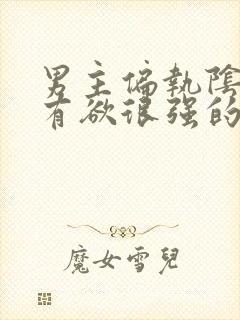 男主偏執陰
有欲很强的
魔女雪兒